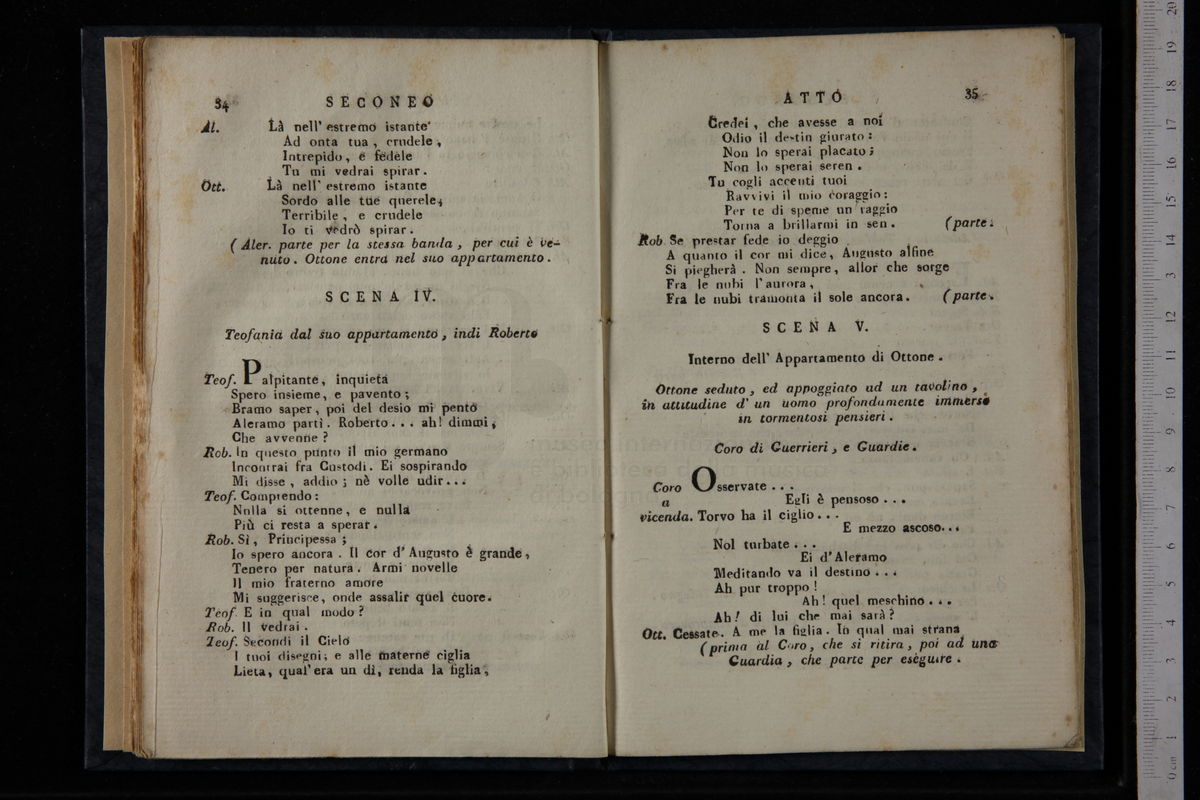 34 SECONEO
Al. Là nell' estremo istante
Ad onta tua, crudele,
Intrepido, e fedele
Tu mi vedrai spirar.
Ott. Là nell' estremo istante
Sordo alle tue querele,
Terribile, e crudele
Io ti vedrò spirar.
( Aler. parte per la stessa banda, per cui è ve-
nuto. Ottone entra nel suo appartamento.
SCENA IV.
Teofania dal suo appartamento, indi Roberto
Teof. Palpitante, inquieta
Spero insieme, e pavento;
Bramo saper, poi del desio mi pento
Aleramo partì. Roberto... ah! dimmi,
Che avvenne?
Rob. In questo punto il mio germano
Incontrai fra Custodi. Ei sospirando
Mi disse, addio; nè volle udir...
Teof. Comprendo:
Nulla si ottenne, e nulla
Più ci resta a sperar.
Rob. Sì, Principessa;
Io spero ancora. Il cor d' Augusto è grande,
Tenero per natura. Armi novelle
Il mio fraterno amore
Mi suggerisce, onde assalir quel cuore.
Teof. E in qual modo?
Rob. Il vedrai.
Teof. Secondi il Cielo
I tuoi disegni; e alle materne ciglia
Lieta, qual' era un dì, renda la figlia,
ATTO 35
Credei, che avesse a noi
Odio il destin giurato:
Non lo sperai placato;
Non lo sperai seren.
Tu cogli accenti tuoi
Ravvivi il mio coraggio:
Per te di speme un raggio
Torna a brillarmi in sen. (parte.
Rob Se prestar fede io deggio
A quanto il cor mi dice, Augusto alfine
Si piegherà. Non sempre, allor che sorge
Fra le nubi l'aurora,
Fra le nubi tramonta il sole ancora. (parte.
SCENA V.
Interno dell' Appartamento di Ottone.
Ottone seduto, ed appoggiato ad un tavolino,
in attitudine d' un uomo profondamente immerso
in tormentosi pensieri.
Coro di Guerrieri, e Guardie.
Coro Osservate...
a Egli è pensoso...
vicenda. Torvo ha il ciglio...
E mezzo ascoso...
Nol turbate...
Ei d'Aleramo
Meditando va il destino...
Ah pur troppo!
Ah! quel meschino...
Ah! di lui che mai sarà?
Ott. Cessate. A me la figlia. In qual mai strana
(prima al Coro, che si ritira, poi ad una
Guardia, che parte per eseguire.
museo internazionale
biblioteca della musica
di bologna
0 cm 1 2 3 4 5 6 7 8 9 10 11 12 13 14 15 16 17 18 19 20